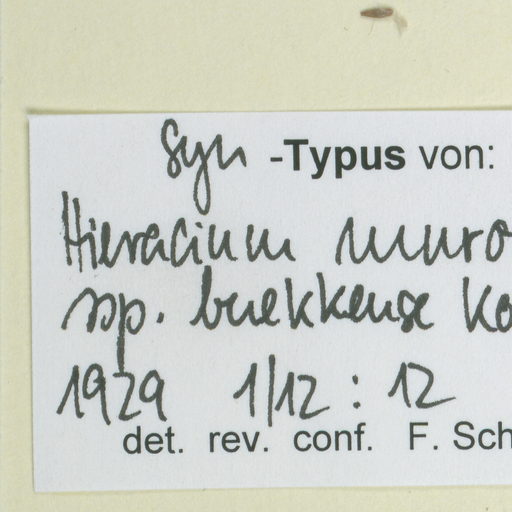 Syn -Typus von:
Hieracium muro
ssp. buekkense Ko
1929 1/12 : 12
det. rev. conf. F. Sch